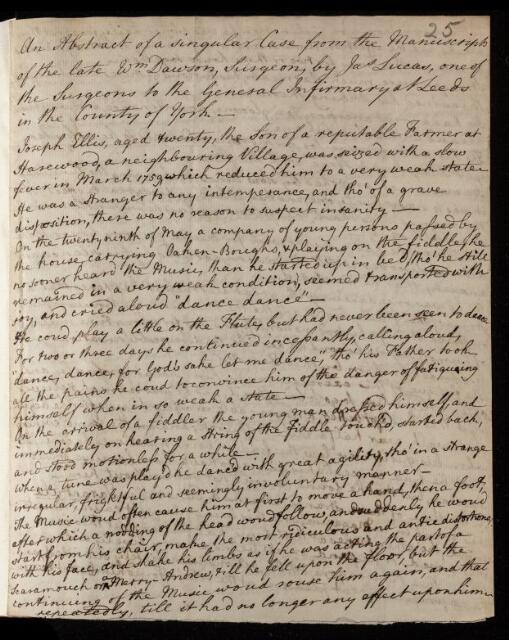 25
An Abstract of a singular Case from the Manuscripts
of the late Wm Dawson, Surgeon, by Jas Lucas, one of
the Surgeons to the General Infirmary at Leeds
in the County of York.—
Joseph Ellis, aged twenty, the son of a reputable Farmer at
Harewood, a neighbouring Village, was seized with a slow
fever in March 1759, which reduced him to a very weak state.
He was a stranger to any intemperance, and tho' of a grave
disposition, there was no reason to suspect insanity—
On the twenty ninth of May a company of young persons passed by
the house, carrying Oaken-Boughs, & playing on the fiddle, he
no sooner heard the Music, than he started up in bed, tho' he still
remained in a very weak condition, seemed transported with
joy, and cried aloud "dance dance"—
He coud play a little on the Flute, but had never been seen to dance
For two or three days he continued incessantly, calling aloud,
"dance, dance, for God's sake let me dance," tho' his Father took
all the pains he coud to convince him of the danger of fatiguing
himself when in so weak a state—
On the arrival of a fiddler the young man dressed himself, and
immediately on hearing a string of the Fiddle touch'd, started back,
and stood motionless for a while—
When a tune was play'd he danced with great agility, tho' in a strange
irregular, frightful and seemingly involuntary manner—
The Music woud often cause him at first to move a hand, then a foot,
after which a nodding of the head woud follow and suddenly he woud
start from his chair, make the most ridiculous and antic distortions
with his face, and shake his limbs as if he was acting the part of a
Scaramouch or Merry-Andrew, till he fell upon the floor, but the
continuing of the Music woud rouse him again, and that
repeatedly, till it had no longer any effect upon him—